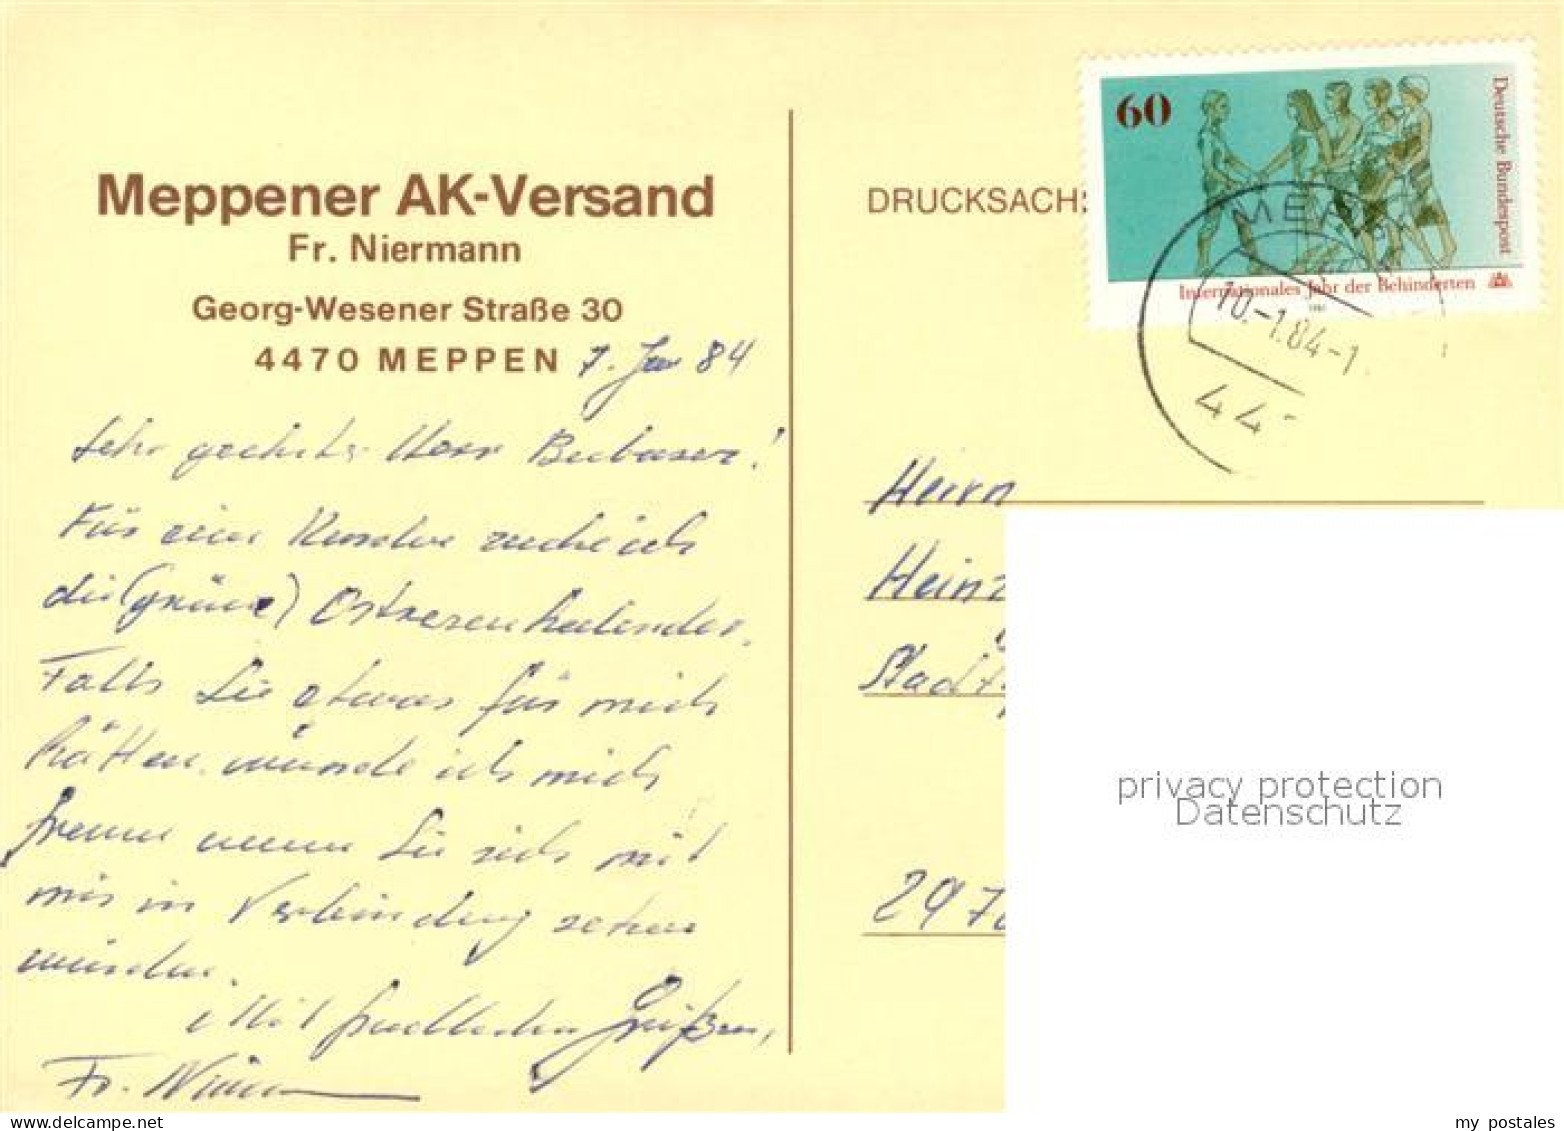 Meppener AK-Versand
Fr. Niermann
Georg-Wesener Straße 30
4470 MEPPEN 7. Jan 84
Sehr geehrter Herr
Für ein Kunden suche ich
die (grüne)
Falls Sie etwas für mich
hätten, würde ich mich
freuen wenn Sie sich mit
mir in Verbindung setzen
würden.
Mit freundlichen Grüßen,
Fr.
DRUCKSACH
60
Deutsche Bundespost
Internationales Jahr der Behinderten
1981
10.-1.84-1
44
Herrn
Heinz
Stadt
297
privacy protection
Datenschutz
my postales